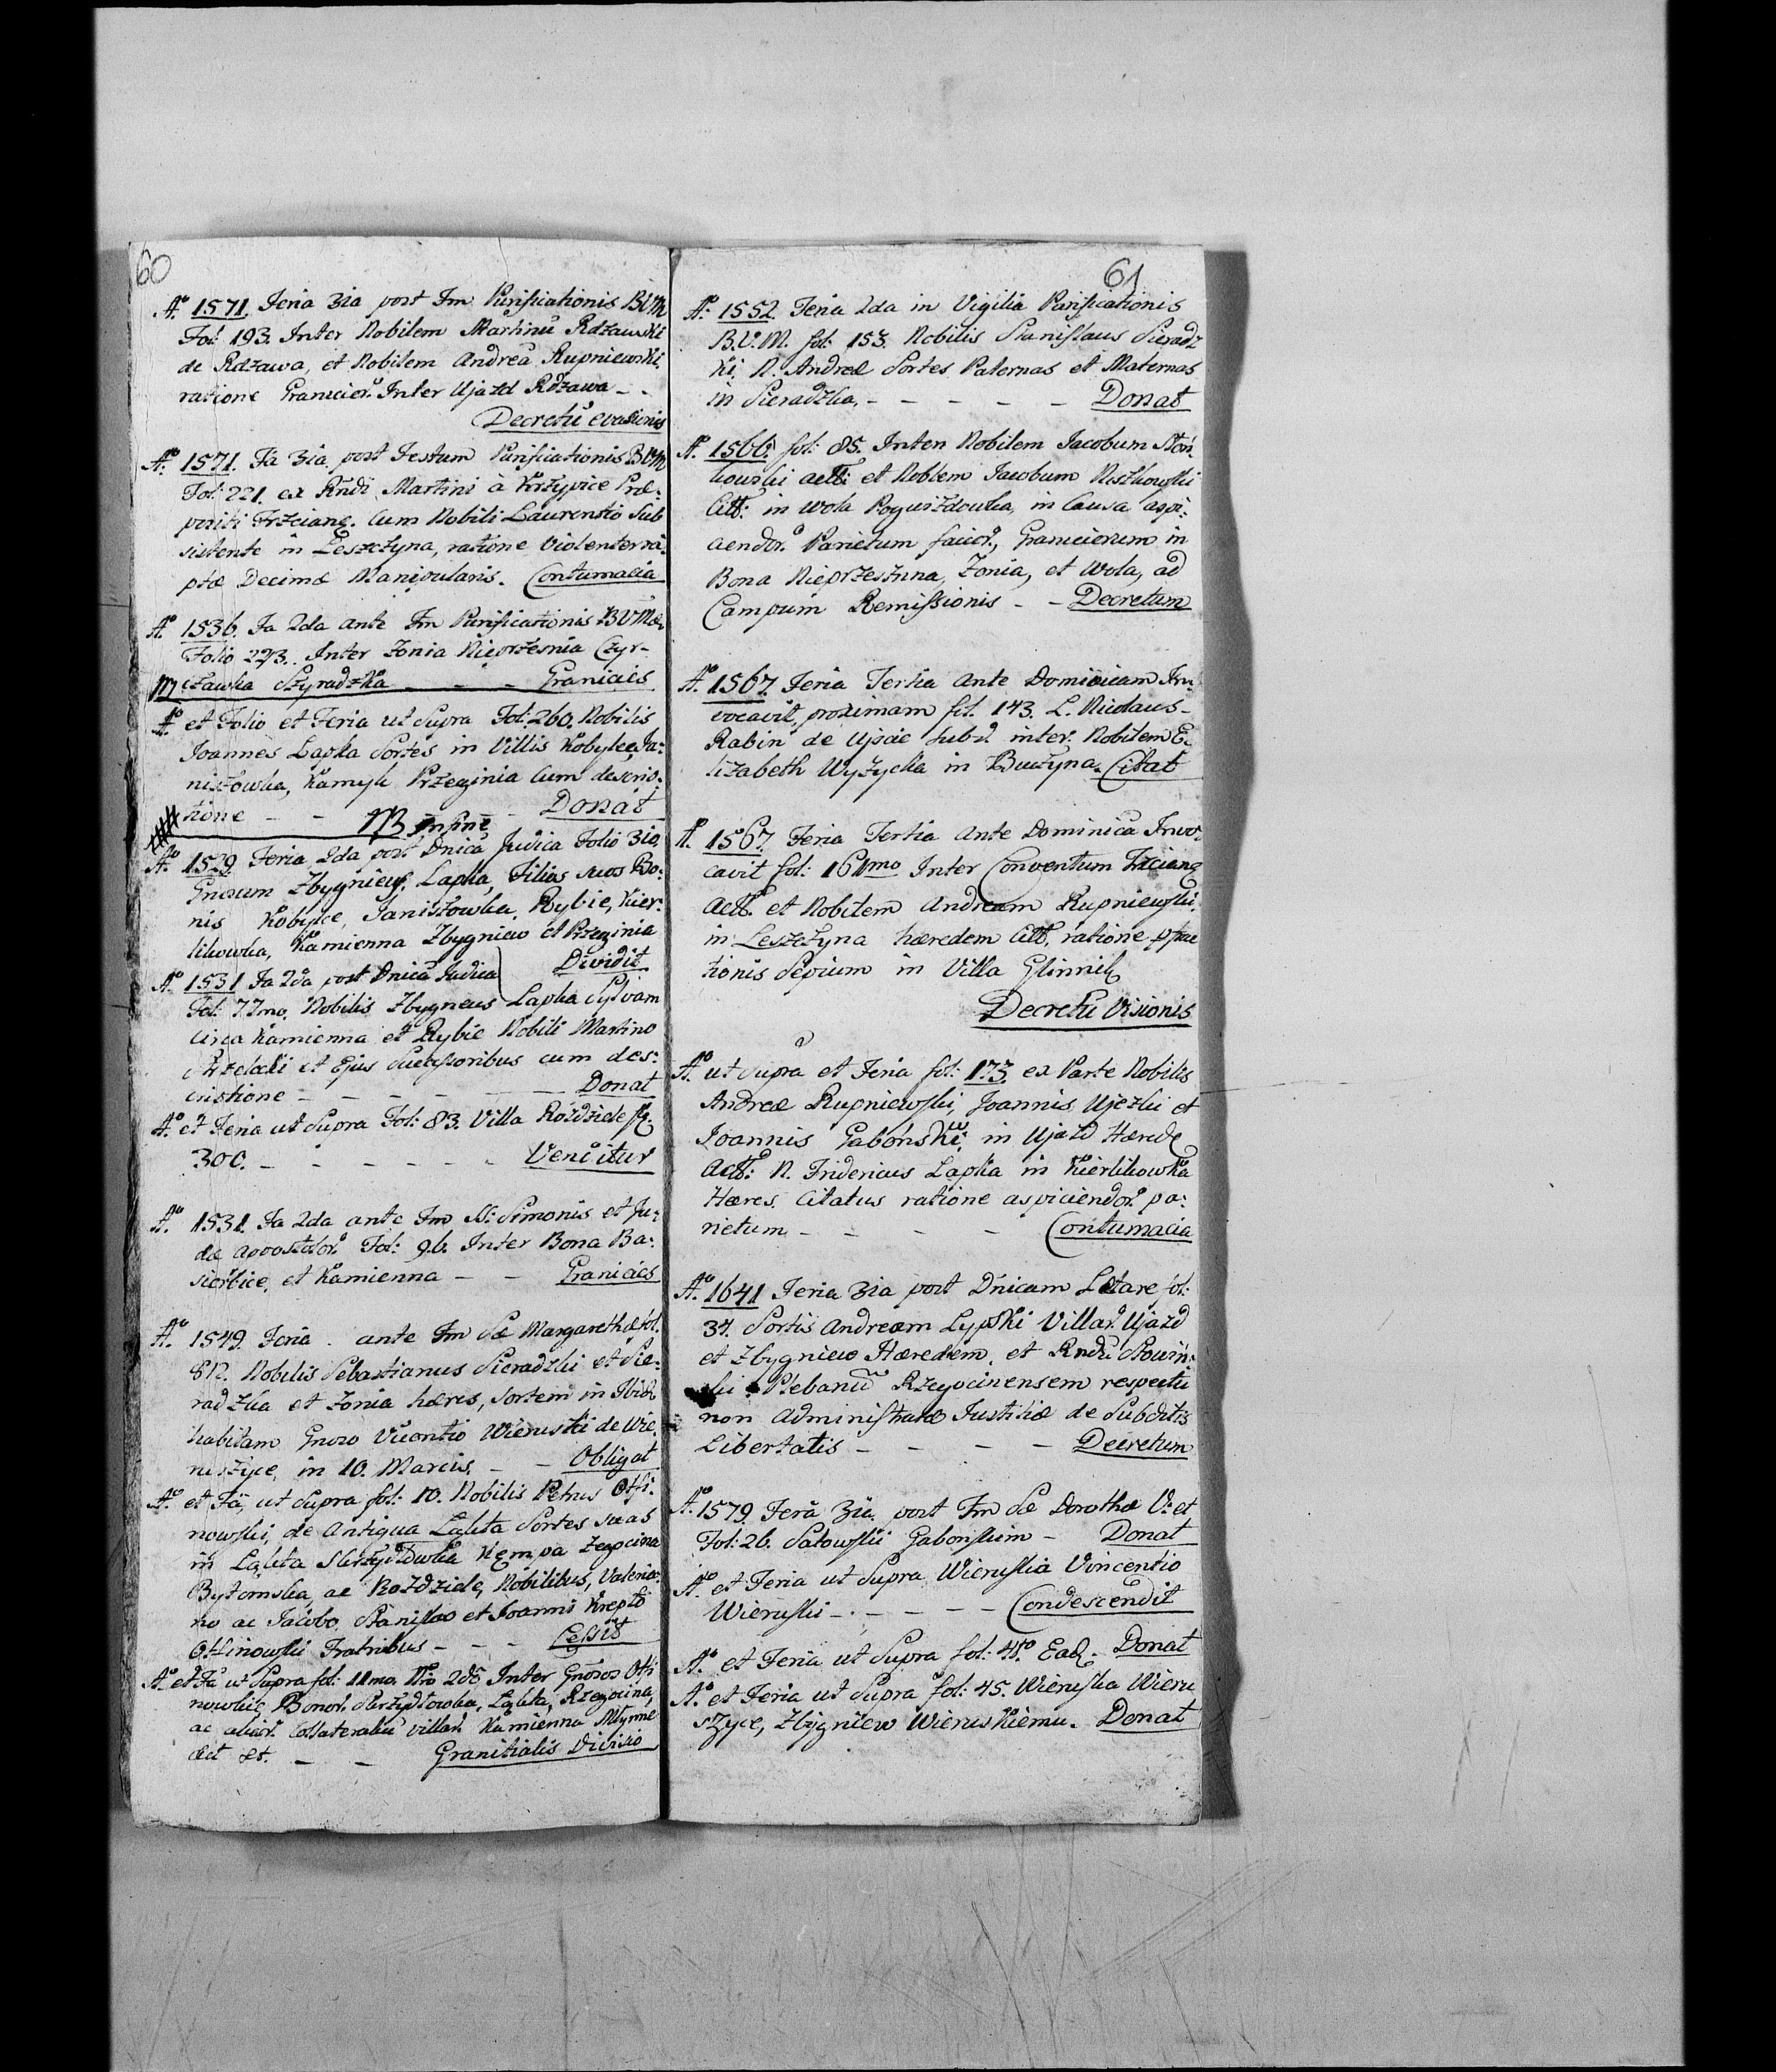 60
Ao. 1571. Feria 3ia post Fm Purificationis BVM
Fol: 193. Inter Nobilem Martinū Rdzawski
de Rdzawa, et Nobilem Andreā Rupniewski,
ratione Granicier. Inter Ujazd Rdzawa - -
Decretū evasionis
Ao. 1571. Fā 3ia post Festum Purificationis BVM
Fol: 221. ex Rndi Martini à Krzyvice Præ:
positi Trzcianę. Cum Nobili Laurentio Sub
sistente in Leszczyna, ratione Violenter ra:
ptæ Decimæ Manipularis. Contumacia
Ao. 1536. Fa 2da ante Fm Purificationis BVMæ
Folio 223. Inter Zonia Nieprzesnia Czyr-
czawka Szyradzka - - - Granicies
Ao et Folio et Feria ut Supra Fol: 260. Nobilis
Joannes Lapka Sortes in Villis Kobylec, Ja:
niszowka, Kamyk Przeginia Cum descrip:
tione - - - Donat
NB in fine
Ao. 1529. Feria 2da post Dnicā Judica Folio 310.
Gnosum Zbygniew Lapka, Filios suos Bo:
nis Kobylce, Janiszowka, Rybie, Kier:
likowka, Kamienna Zbygniew et Przeginia
Dividit
Ao. 1531 Fa 2da post Dnicā Judica
Fol: 77mo. Nobilis Zbygneus Lapka Sylvam
circa Kamienna et Rybie Nobili Martino
et Ejus Successoribus cum des:
criptione - - - - - Donat
Ao. et Feria ut Supra Fol: 83. Villa Rozdziele
300. - - - - - - Venditur
Ao. 1531. Fa 2da ante Fm SS: Simonis et Ju:
dæ Apostolor. Fol: 96. Inter Bona Ba:
siorbice, et Kamienna - - Granicies
Ao. 1549. Feria . ante Fm Sæ Margarethæ fol.
812. Nobilis Sebastianus Sieradzki et Sie:
radzka et Zonia hæres, Sortem in Ibid.
habitam Gnoso Vicentio Wieruski de Wie:
ruszyce, in 10. Marcis. - - Obligat
Ao. et Fā, ut Supra fol: 10. Nobilis Petrus Otfi:
nowski, de Antiqua Ląkta Sortes suas
in Ląkta Skrzydlowka Kempa Zegocina
Bytomska, ac Rozdziele, Nobilibus, Valeria:
no ac Jacobo, Stanislao et Joanni
Otfinowski Fratribus - - - Cessit
Ao. et Fa ut Supra fol: 11mo. Nro 2do Inter Gnosos Otfi
nowskie Bonor. Skrzydlowka, Ląkta, Rzegocina,
ac alior. Collateraliū villar. Kamienna Mlynne
dit et. - - Granitialis Divisio
61
Ao. 1552. Feria 2da in Vigilia Purificationis
B.V.M. fol: 153. Nobilis Stanislaus Sieradz
ki. N. Andreæ Sortes Paternas et Maternas
in Sieradzka. - - - - - Donat
Ao. 1566. fol: 85. Inter Nobilem Jacobum Ston:
kowski act: et Noblem Jacobum Niszkowski
Citt: in Wola Poguizdowka, in Causa aspi:
ciendor. Parietum facior., Graniciorum in
Bona Nieprzesznna, Zonia, et Wola, ad
Campum Remissionis - - Decretum
Ao. 1567. Feria Tertia ante Dominicam In:
vocavit, proximam fol. 143. L. Nicolaus -
Rabin de Ujscie Subd. inter. Nobilem E:
lizabeth Wyżycka in Buczyna. Citat
Ao. 1567. Feria Tertia ante Dominicā Invo:
cavit fol: 161mo Inter Conventum Trzcianę
Act. et Nobilem Andream Rupniewski,
in Leszczyna hæredem Citt, ratione
tionis Sepium in Villa Glinnik
Decretū Visionis
Ao. ut Supra et Feria fol: 173. ex Parte Nobilis
Andreæ Rupniewski, Joannis Ujezki et
Joannis Gabonski, in Ujazd Hæred
Act: N. Fridericus Lapka in Kierlikowka
Hæres. Citatus ratione aspiciendor. pa:
rietum - - - - Contumacia
Ao. 1641 Feria 3ia post Dnicam Lætare fol:
34. Sortis Andream Lypski Villar. Ujazd
et Zbygniew Hæredem, et Rndū
ski Plebanū Rzegocinensem respectu
non Administratæ Justitiæ de Subditis
Libertatis - - - - Decretum
Ao. 1579. Feria 3ia. post Fm Sæ Dorothæ V: et
Fol: 26. Satowskii Gabonskim - Donat
Ao. et Feria ut Supra Wieruskia Vincentio
Wieruski - - - - - Condescendit
Ao. et Feria ut Supra fol: 41o. Ead. Donat
Ao. et Feria ut Supra fol: 45. Wieruska Wieru
szyce, Zbigniew Wieruskiemu. Donat